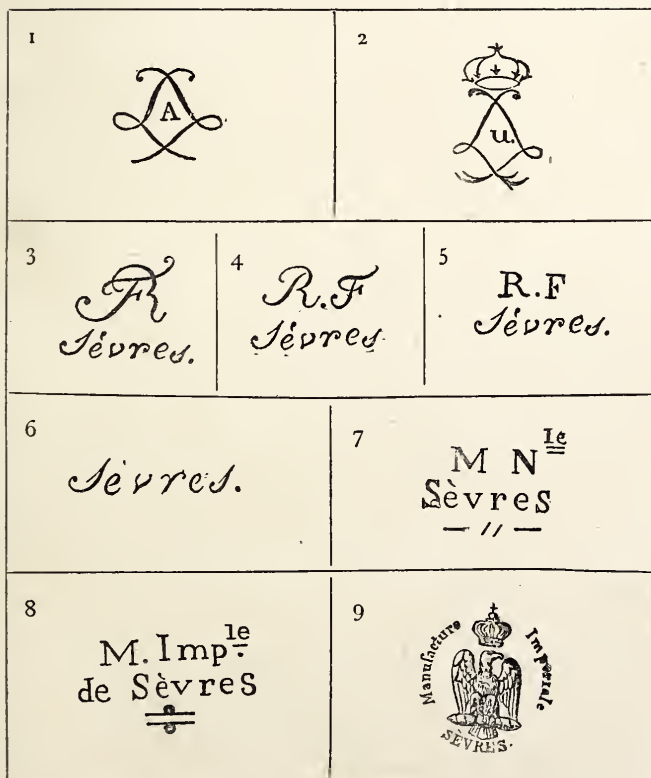 1
A
2
u.
3
FR
Sévres.
4
R.F
Sévres
5
R.F
Sévres.
6
Sèvres.
7
M N Ie
Sèvres
— // —
8
M. Imp le
de Sèvres
9
Manufacture Impériale
SÈVRES.